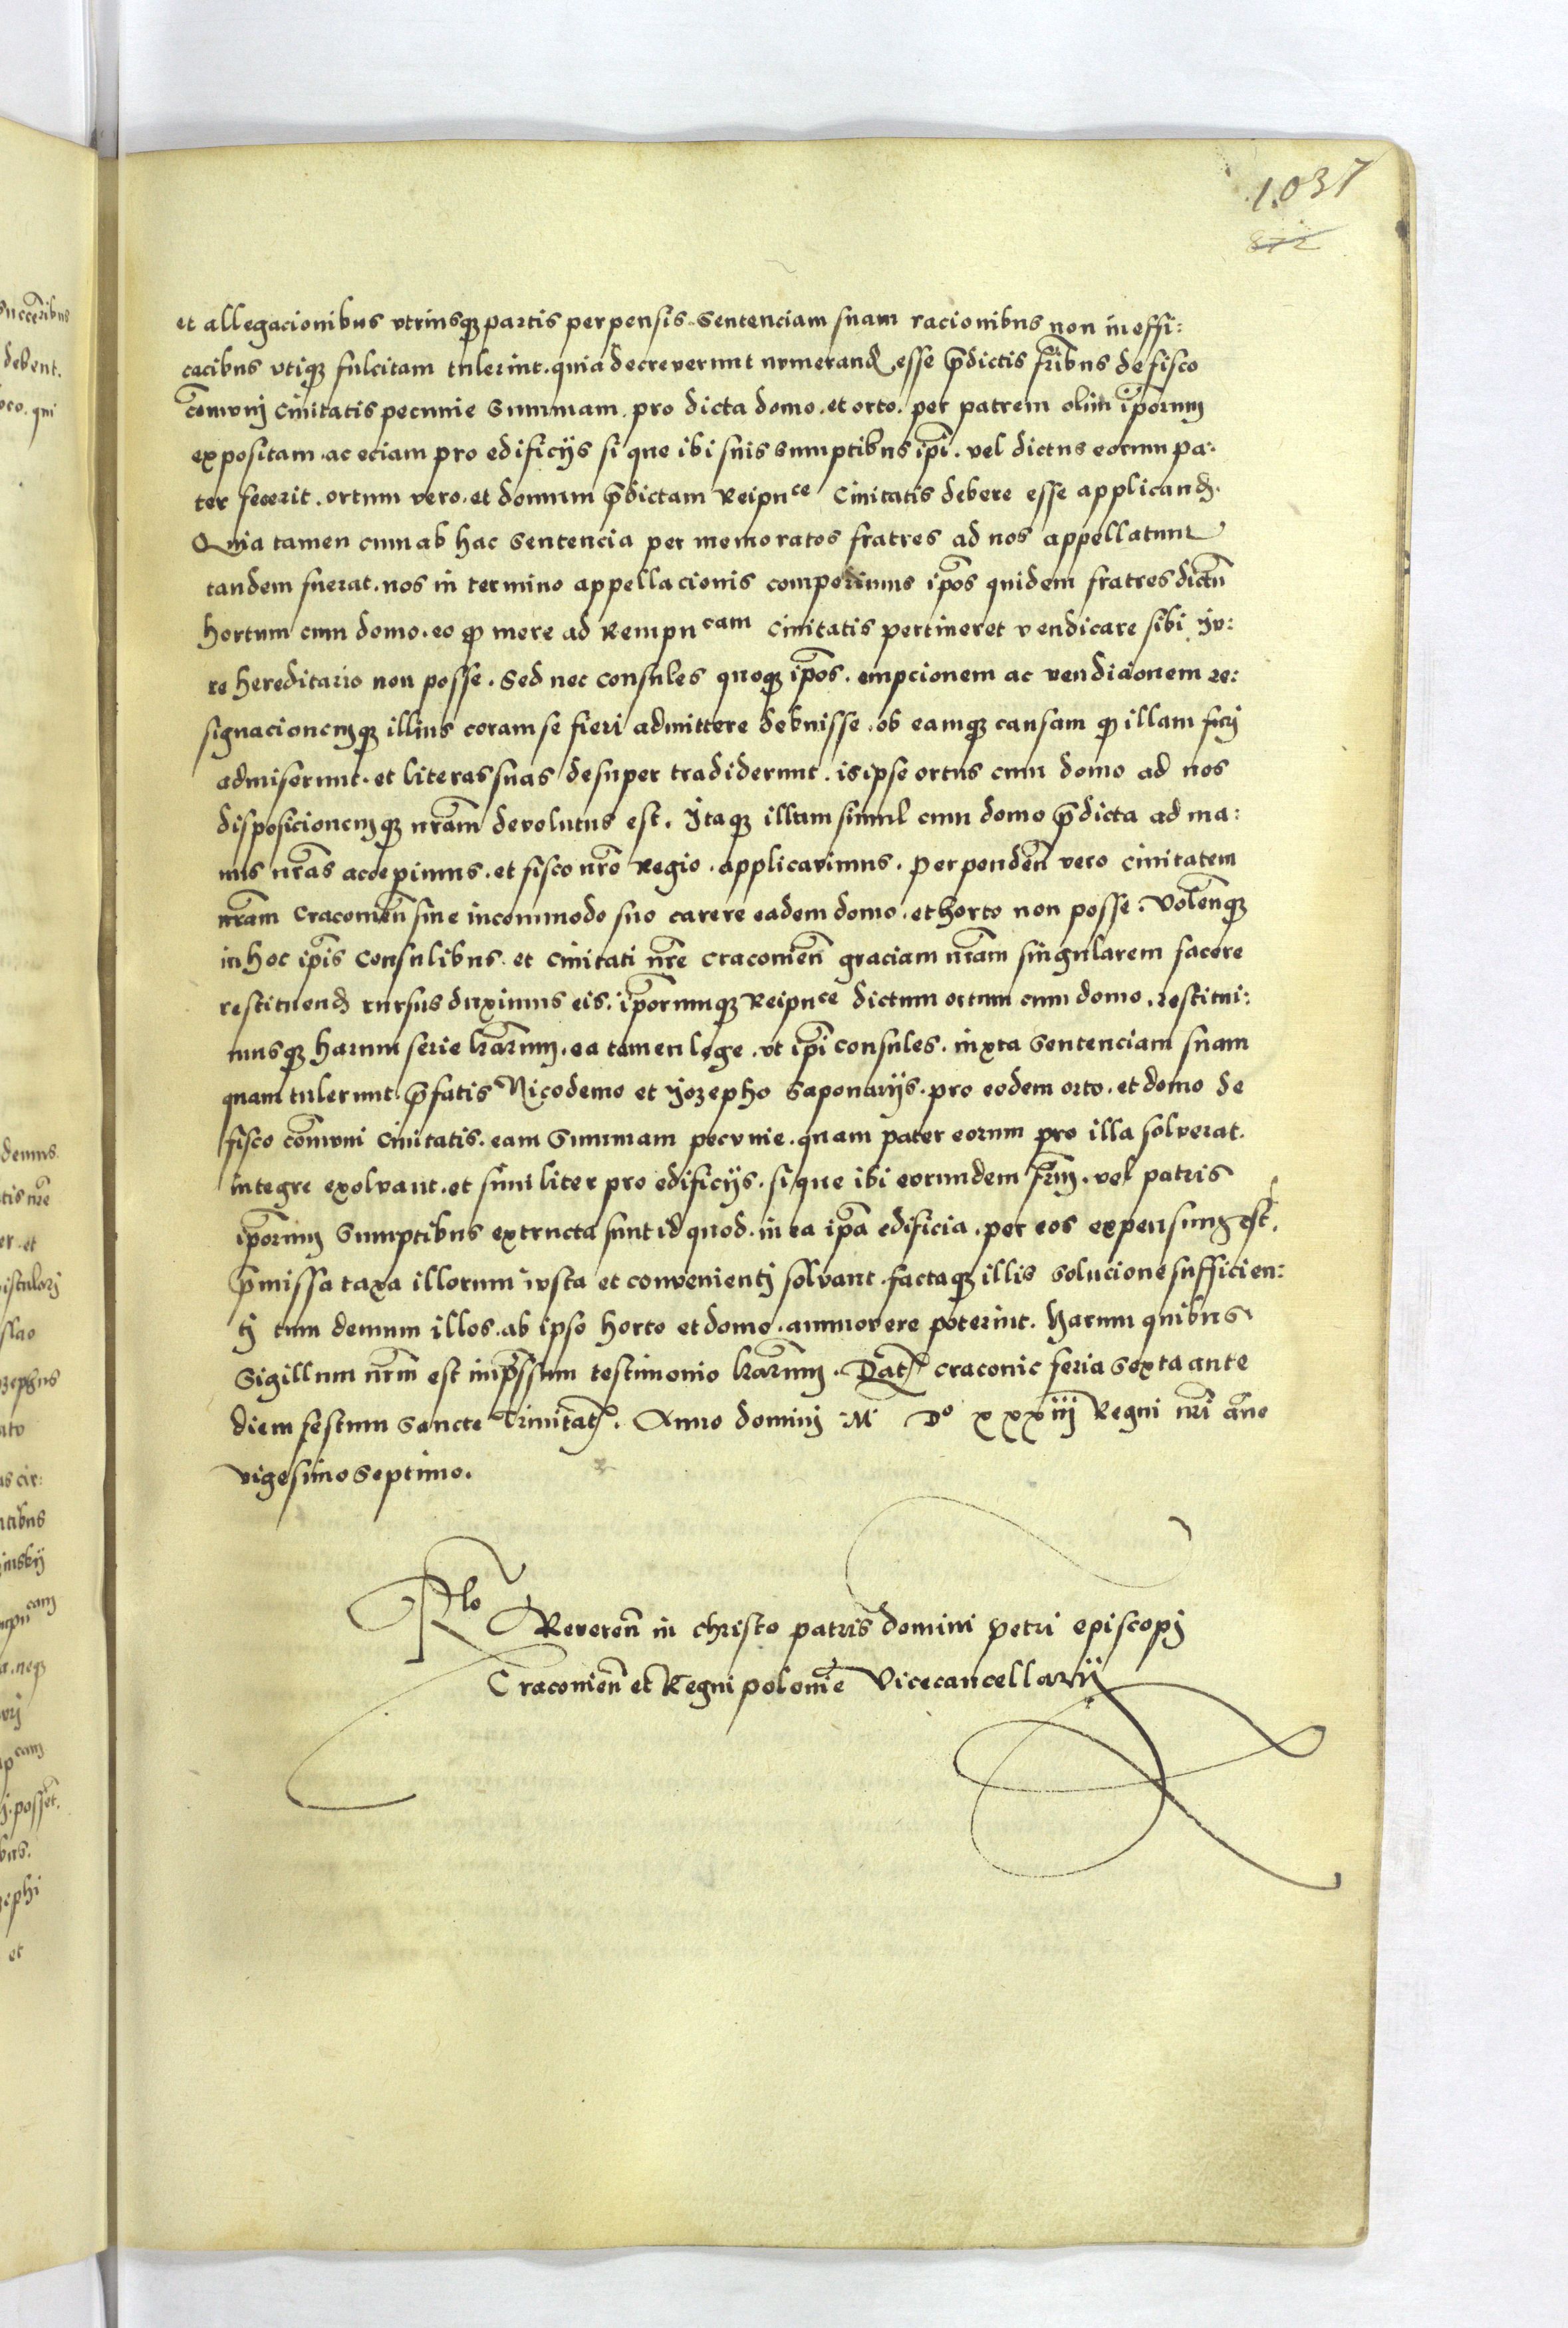 1037
872
et allegacionibus vtriusqꝫ partis perpensis. Sentenciam suam racionibus non in effi:
cacibus vtiqꝫ fulcitam tulerint. quia decreverunt numerand esse p̄dictis fr̄ibus de fisco
com̄vnj Civitatis pecunie Summam. pro dicta domo. et orto. per patrem olim ip̄orum
expositam. ac eciam pro edificijs si que ibi suis sumptibus ip̄i. vel dictus eorum pa:
ter fecerit. ortum vero. et domum p̄dictam Reipuce Civitatis debere esse applicand.
Quia tamen cum ab hac Sentencia per memoratos fratres ad nos appellatum
tandem fuerat. nos in termino appellacionis comperimus ip̄os quidem fratres dictū
hortum cum domo. eo ꝙ mere ad Rempucam Civitatis pertineret vendicare sibi iv:
re hereditario non posse. Sed nec Consules quoqꝫ ip̄os. empcionem ac vendicionem re:
signacionemqꝫ illius coram se fieri admittere debuisse. ob eamqꝫ causam ꝙ illam fierj
admiserunt. et literas suas desuper tradiderunt. is ipse ortus cum domo ad nos
disposicionemqꝫ nr̄am devolutus est. Itaqꝫ illum simul cum domo p̄dicta ad ma:
nus nr̄as accepimus. et fisco nr̄o Regio. applicavimus. Perpenden̄ vero Civitatem
nr̄am Cracovien̄ sine incommodo suo carere eadem domo. et horto non posse. Volen̄qꝫ
in hoc ip̄is Consulibus. et Civitati nr̄e Cracovien̄ graciam nr̄am singularem facere
restituend rursus duximus eis. ip̄orumqꝫ Reipuce dictum ortum cum domo. restitui:
musqꝫ harum serie lr̄arum. ea tamen lege. vt ip̄i Consules. iuxta Sentenciam suam
quam tulerunt. p̄fatis Nicodemo et Jozepho Saponarijs. pro eodem orto. et domo de
fisco com̄vni Civitatis. eam Summam pecvnie. quam pater eorum pro illa solverat.
integre exolvant. et similiter pro edificijs. si que ibi eorundem fr̄um. vel patris
ip̄orum Sumptibus extructa sunt id quod. in ea ip̄a edificia. per eos expensum est.
p̄missa taxa illorum ivsta et convenientj solvant. factaqꝫ illis Solucione sufficien:
tj tum demum illos. ab ipso horto et domo. ammovere poterint. Harum quibus
Sigillum nr̄m est imp̄ssum testimonio lr̄arum. Dat̄ Cracovie feria Sexta ante
diem festum Sancte Trinitat̄. Anno domini M Do xxxiii Regni nr̄i an̄o
vigesimo Septimo.
Rlo Reveren̄ in christo patris domini Petri episcopj
Cracovien̄ et Regni polonie Vicecancellarij